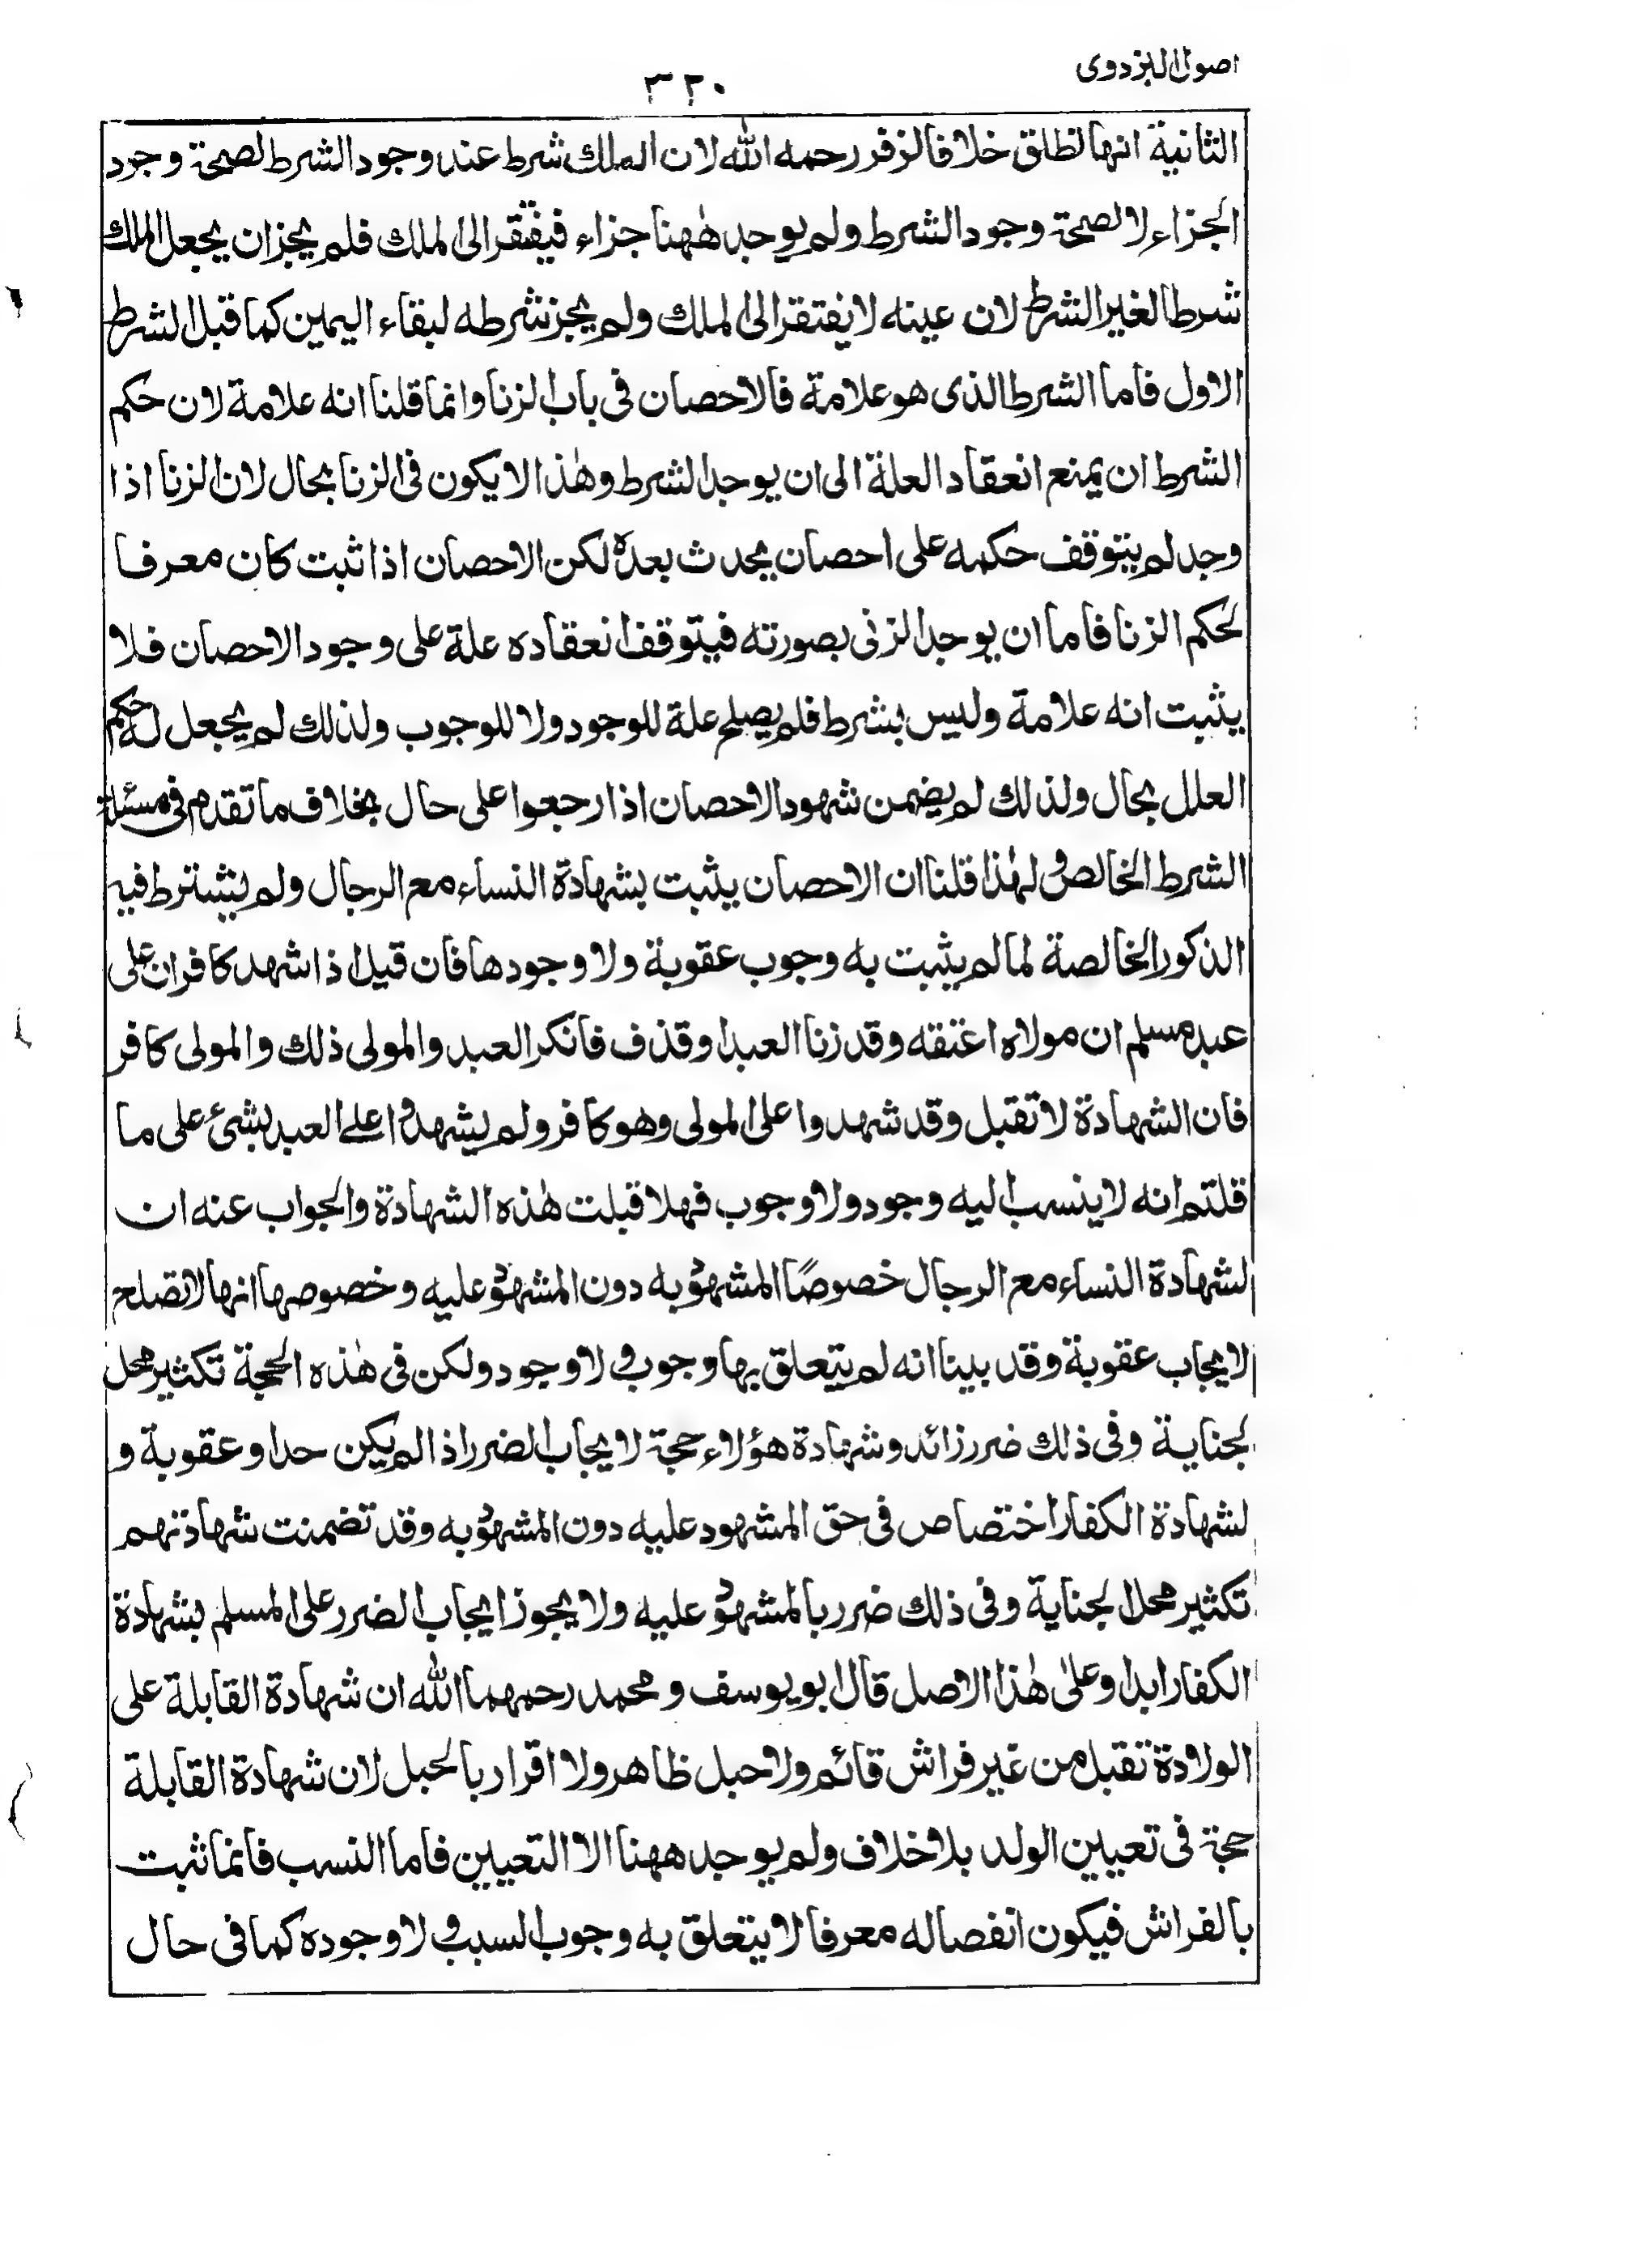 اصول البزدوی
۳۲۰
الثانية انها تطلق خلافا لزفر رحمه الله لان الملك شرط عند وجود الشرط لصحة وجود
الجزاء لا لصحة وجود الشرط ولم يوجد هٰهنا جزاء فيفتقر الى الملك فلم يجز ان يجعل الملك
شرطا لغير الشرط لان عينه لا يفتقر الى الملك ولم يجز شرطه لبقاء اليمين كما قبل الشرط
الاول فاما الشرط الذى هو علامة فالاحصان فى باب الزنا وانما قلنا انه علامة لان حكم
الشرط ان يمنع انعقاد العلة الى ان يوجد الشرط وهٰذا لا يكون فى الزنا بحال لان الزنا اذا
وجد لم يتوقف حكمه على احصان يحدث بعده لكن الاحصان اذا ثبت كان معرفا
لحكم الزنا فاما ان يوجد الزنى بصورته فيتوقف انعقاده علة على وجود الاحصان فلا
يثبت انه علامة وليس بشرط فلم يصلح علة للوجود ولا للوجوب ولذلك لم يجعل له حكم
العلل بحال ولذلك لم يضمن شهود الاحصان اذا رجعوا على حال بخلاف ما تقدم فى مسئلة
الشرط الخالص ولهٰذا قلنا ان الاحصان يثبت بشهادة النساء مع الرجال ولم يشترط فيه
الذكور الخالصة لما لم يثبت به وجوب عقوبة ولا وجودها فان قيل اذا شهد كافران على
عبد مسلم ان مولاه اعتقه وقد زنا العبد او قذف فانكر العبد والمولى ذلك والمولى كافر
فان الشهادة لا تقبل وقد شهدوا على المولى وهو كافر ولم يشهدوا على العبد بشئ على ما
قلتم انه لا ينسب اليه وجود ولا وجوب فهلا قبلت هٰذه الشهادة والجواب عنه ان
لشهادة النساء مع الرجال خصوصًا المشهود به دون المشهود عليه وخصوصها انها لا تصلح
لايجاب عقوبة وقد بينا انه لم يتعلق بها وجوب ولا وجود ولكن فى هٰذه الحجة تكثير محل
لجناية وفى ذلك ضرر زائد وشهادة هؤلاء حجة لايجاب الضرر اذا لم يكن حدا وعقوبة و
لشهادة الكفار اختصاص فى حق المشهود عليه دون المشهود به وقد تضمنت شهادتهم
تكثير محل الجناية وفى ذلك ضرر بالمشهود عليه ولا يجوز ايجاب الضرر على المسلم بشهادة
الكفار ابدا وعلى هٰذا الاصل قال ابو يوسف و محمد رحمهما الله ان شهادة القابلة على
الولادة تقبل من غير فراش قائم ولا حبل ظاهر ولا اقرار بالحبل لان شهادة القابلة
حجة فى تعيين الولد بلا خلاف ولم يوجد ههنا الا التعيين فاما النسب فانما ثبت
بالفراش فيكون انفصاله معرفا لا يتعلق به وجوب السبب ولا وجوده كما فى حال